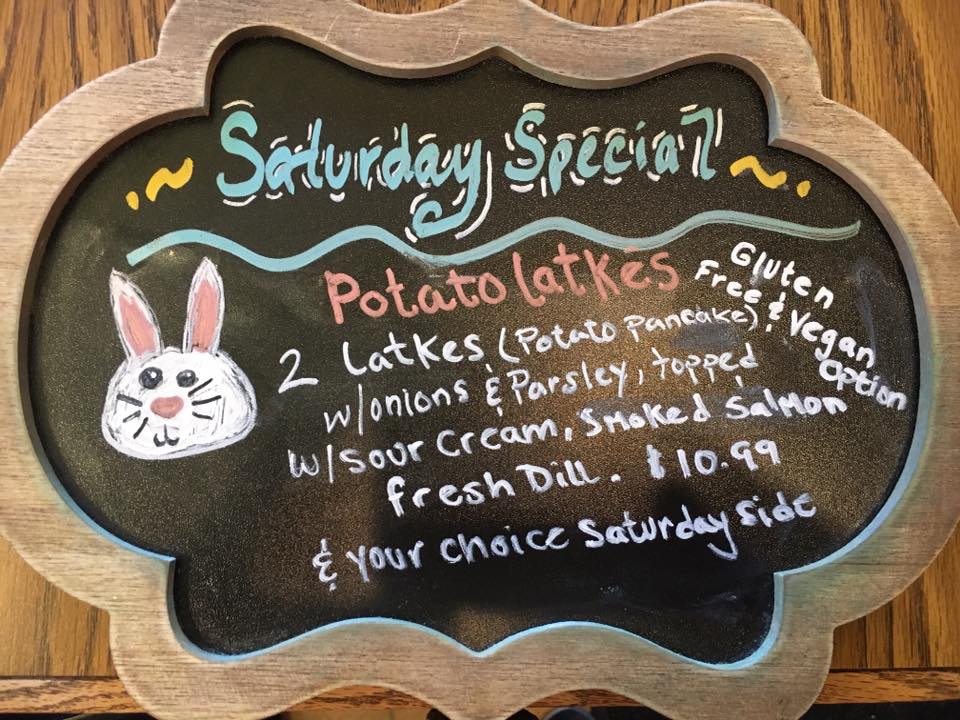 ~ Saturday Special ~
Potato latkes
Gluten
Free & Vegan
Option
2 latkes (Potato Pancake)
w/onions & Parsley, topped
w/sour cream, smoked salmon
fresh Dill. $10.99
& your choice Saturday side